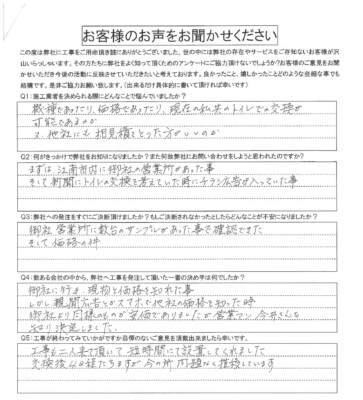 お客様のお声をお聞かせください
この度は弊社に工事をご用命頂き誠にありがとうございました。世の中には弊社の存在やサービスをご存知ないお客様が沢
山いらっしゃいます。その方たちに弊社をよく知って頂くためのアンケートにご協力頂けないでしょうか?お客様のご意見をお聞
かせいただき今後の活動に反映させていただきたいと考えております。良かったこと、嬉しかったことどのような些細な事でも
結構です。是非ご協力お願い致します。(出来るだけ具体的に書いて頂ければ幸いです)
Q1:施工業者を決められる際にどんなことで悩んでいましたか?
機種であったり、価格であったり、現在の私共のトイレでの交換が
可能であるのか
又、他社にも相見積をとった方がいいのか
Q2:何がきっかけで弊社をお知りになりましたか?また何故弊社にお問い合わせをしようと思われたのですか?
まずは、江南市内に御社の営業所があった事
そして新聞にトイレの交換を考えていた時にチラシ広告が入っていた事
Q3:弊社への発注をすぐにご決断頂けましたか?もしご決断されなかったとしたらどんなことが不安になりましたか?
御社営業所に数台のサンプルがあった事で確認できた
そして価格の件
Q4:数ある会社の中から、弊社へ工事を発注して頂いた一番の決め手は何でしたか?
御社に行き、現物と価格を知れた事
しかし新聞広告とかスマホで他社の価格を知った時
御社より同様のものが安価でありましたが営業マン今井さんを
知り決定しました。
Q5:工事が終わってみていかがですか忌憚のないご意見を頂戴出来ましたら幸いです。
工事も二人来て頂いて短時間にて設置してくれました
交換後40日経ちますが今の所問題なく推移しています